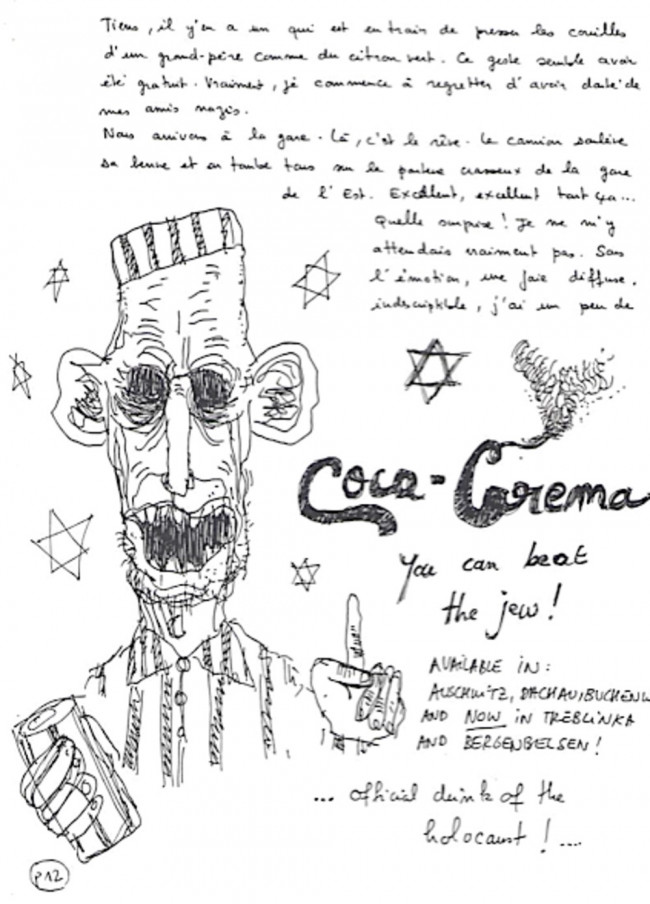 Tiens, il y'en a un qui est en train de presser les couilles
d'un grand-père comme du citron vert. Ce geste semble avoir
été gratuit. Vraiment, je commence à regretter d'avoir de
mes amis nazis.
Nous arrivons à la gare. Là, c'est le rêve. Le camion soulève
sa benne et en tombe tous sur le crasseux de la gare
de l'Est. Excellent, excellent tout ça...
Quelle surprise! Je ne m'y
attendais vraiment pas. Sans
l'émotion, une joie diffuse,
indescriptible, j'ai un peu de
Coca-Crema
You can beat
the jew!
AVAILABLE IN:
AUSCHWITZ, DACHAU, BUCHENW
AND NOW IN TREBLINKA
AND BERGENBELSEN!
... official drink of the
holocaust!....
p12